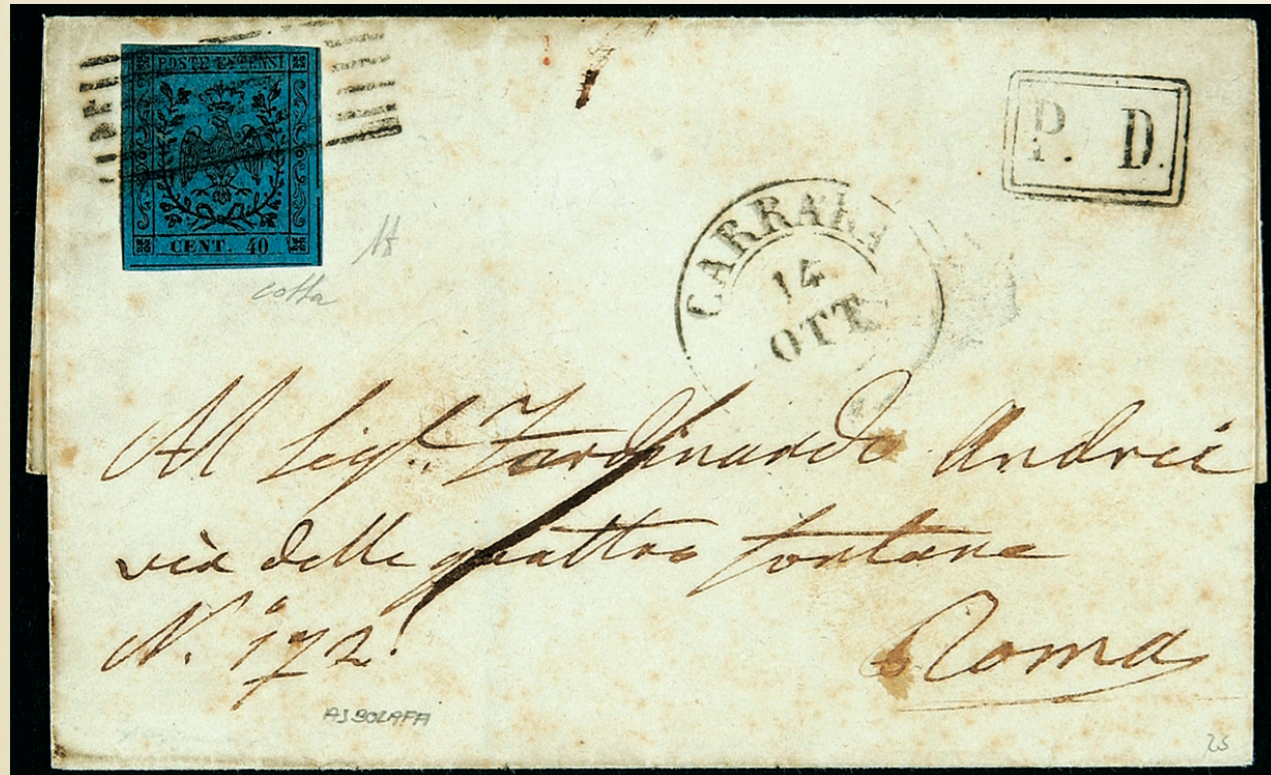 POSTE ESTENSI
CENT. 40
P. D.
CARRARA
14
OTT.
colla
Al Sigr. Ferdinando Andrei
via delle quattro fontane
N.° 172.
Roma
ASBOLAFFI
25